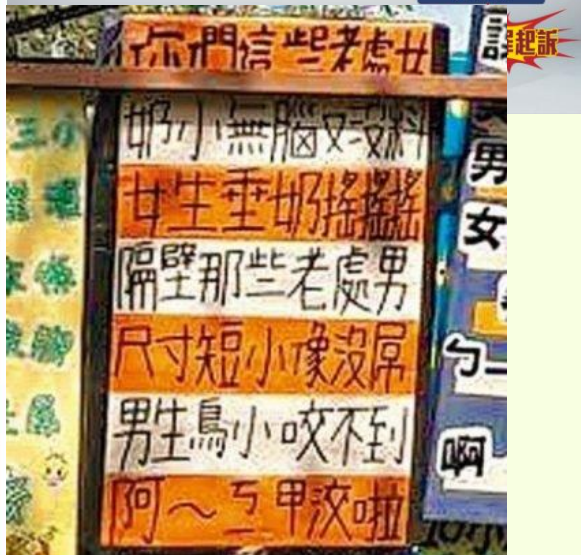 起訴
你們這些老處女
奶小無腦又沒料
女生垂奶搖搖搖
隔壁那些老處男
尺寸短小像沒屌
男生鳥小咬不到
阿～ㄎ甲洨啦
男
女
ㄅ
啊